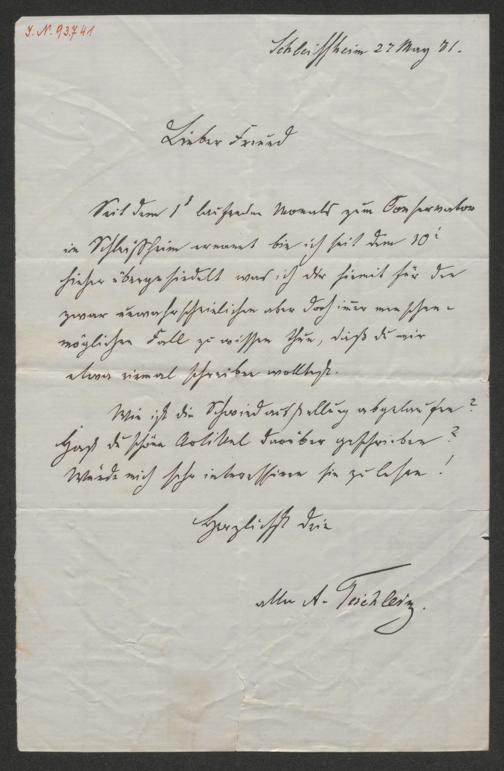 I. N. 93.741
Schleissheim 27 May 71.
Lieber Freund
Seit dem 1t laufenden Monats zum Conservator
in Schleißheim ernannt bin ich seit dem 10t
hieher übergesiedelt was ich dir hiemit für den
zwar unwahrscheinlichen aber doch imer menschen-
möglichen Fall zu wissen thue, daß du mir
etwa einmal schreiben wolltest.
Wie ist die Schwindausstellung abgelaufen?
Hast du schöne Artikel darüber geschrieben?
Würde mich sehr interessiren sie zu lesen!
Herzlichst dein
alter A. Teichlein.